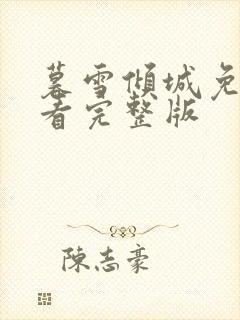 暮雪傾城免
看完整版
陳志豪